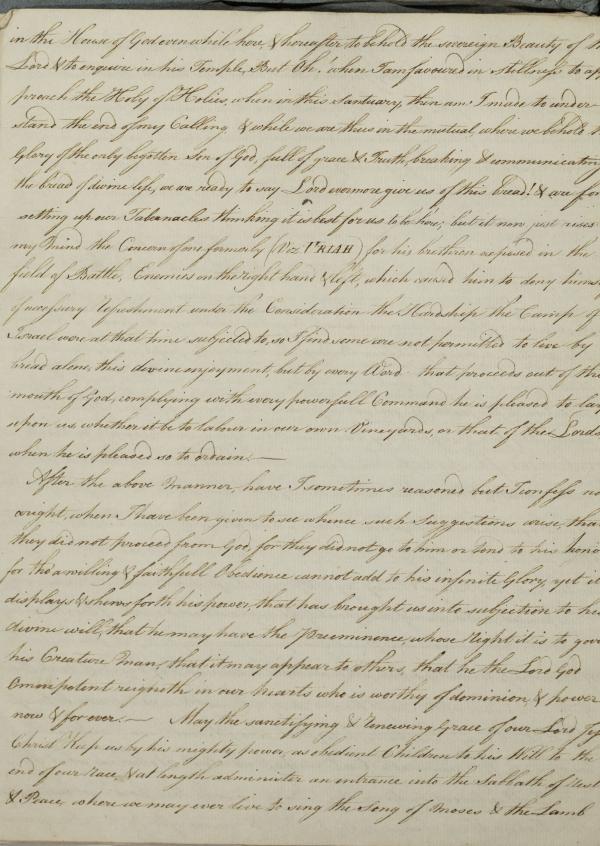 in the House of God even while here, & hereafter to behold the sovereign Beauty of th
Lord & to enquire in his Temple, But Oh! when I am favoured in stillness to ap
proach the Holy of Holies, when in this Sanctuary, then am I made to under
stand the end of my Calling & while we are thus in the mutual, where we behold
Glory of the only begotten Son of God, full of grace & Truth, breaking & communicating
the bread of divine life, we are ready to say Lord evermore give us of this Bread! & are for
setting up our Tabanacles thinking it is best for us to be here; but it now just rises
my Mind the Concern of one formerly (Viz URIAH) for his brethren exposed in the
field of Battle, Enemies on the right hand & left, which caused him to deny himse
of necessary refreshment under the Consideration the Hardship the Camp of
Israel were at that time subjected to, so I find some are not permitted to live by
bread alone, this divine enjoyment, but by every Word that proceeds out of the
mouth of God, complying with every powerfull Command he is pleased to lay
upon us whether it be to labour in our own Vineyards, or that of the Lords
when he is pleased so to ordain.—
After the above manner, have I sometimes reasoned but I confess no
aright, when I have been given to see whence such Suggestions arise, that
they did not proceed from God, for they did not go to him or tend to his hono
for tho' a willing & faithfull Obedience cannot add to his infinite Glory, yet it
displays & shews forth his power, that has brought us into subjection to he
divine will, that he may have the Preeminence, whose Right it is to gove
his Creature Man, that it may appear to others, that he the Lord God
Omnipotent reigneth in our hearts who is worthy of dominion, & power
now & for ever.— May the sanctifying & Renewing Grace of our Lord Jes
Christ Keep us by his mighty power, as obedient Children to his Will to the
end of our race, & at length administer an entrance into the Sabbath of Rest
& Peace, where we may ever live to sing the Song of Moses & the Lamb